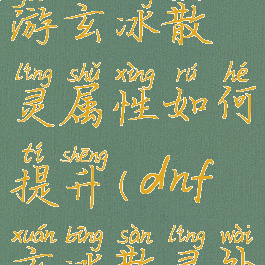 游玄冰散
líng shǔ xìng rú hé
灵属性如何
tí shēng
提升(dnf
xuán bīng sàn líng wài
玄冰散灵外